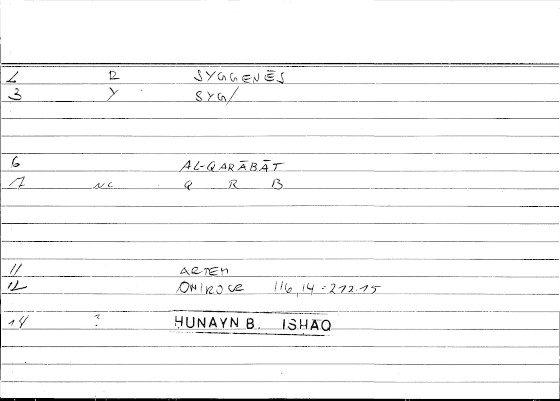 1 R SYGGENĒS
3 Y SYG/
6 AL-QARĀBĀT
7 NC Q R B
11 ARTEM
12 ONIROCR 116,14 = 212.15
14 ? HUNAYN B. ISHAQ